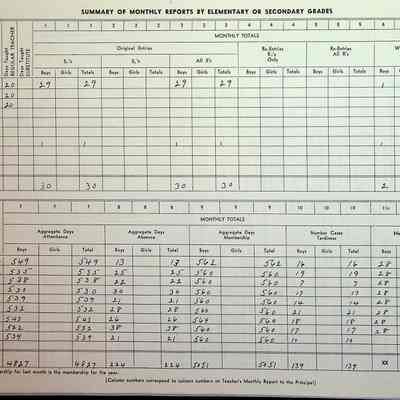 SUMMARY OF MONTHLY REPORTS BY ELEMENTARY OR SECONDARY GRADES
Days Taught REGULAR TEACHER
Days Taught SUBSTITUTE
MONTHLY TOTALS
Original Entries
Re-Entries R's Only
Re-Entries All R's
E₁'s
E₂'s
All E's
Boys Girls Totals Boys Girls Totals Boys Girls Totals Boys Girls Totals Boys Girls Totals Boys
20 29 29 29 29 1
20
20
1 1 1 1
30 30 30 30 2
MONTHLY TOTALS
Aggregate Days Attendance
Aggregate Days Absence
Aggregate Days Membership
Number Cases Tardiness
Boys Girls Total Boys Girls Total Boys Girls Total Boys Girls Total Boys
549 549 13 13 562 562 16 16 28
535 535 25 25 560 560 19 19 28
538 538 22 22 560 560 7 7 28
530 530 30 30 560 560 17 17 28
539 539 21 21 560 560 14 14 28
532 532 28 28 560 560 21 21 28
18 18 28
522 38 38 560 560 17 17 28
539 539 21 21 560 560
4827 4827 224 224 5051 5051 139 139 XX
ership for last month is the membership for the year.
(Column numbers correspond to column numbers on Teacher's Monthly Report to the Principal)